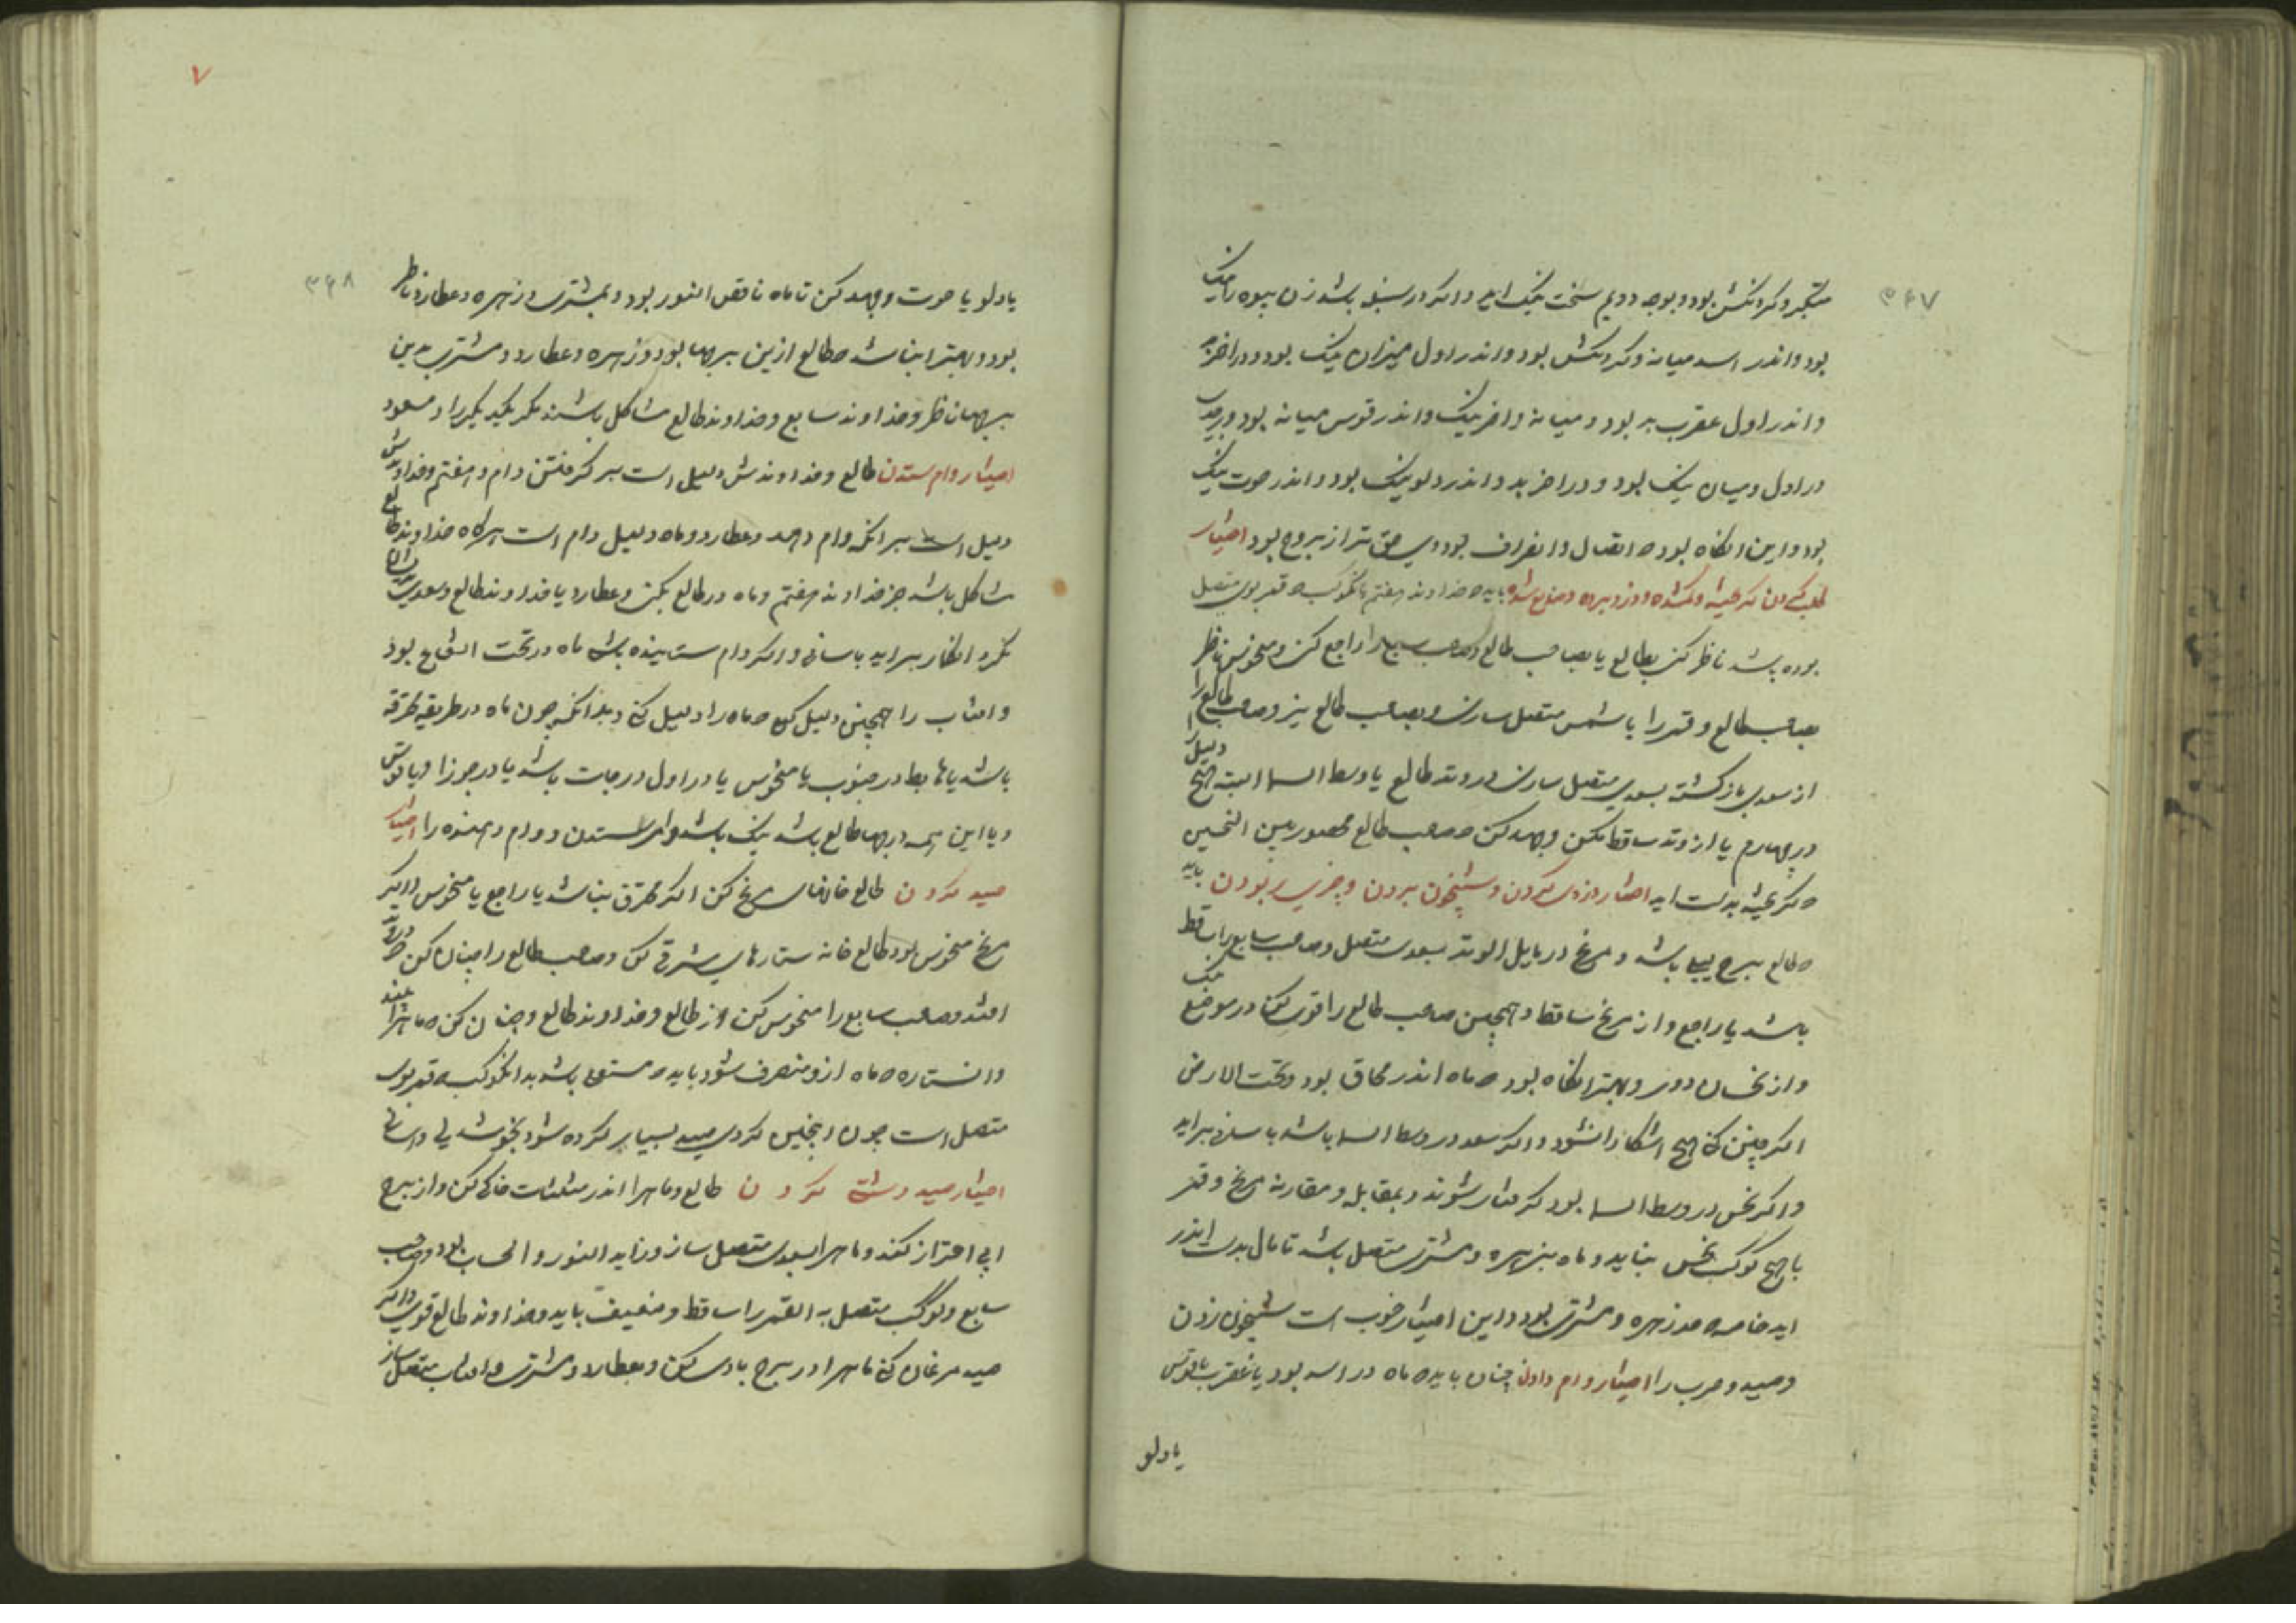 ۳۶۷
متکبر و کردنکش بود و بوجه دویم سخت نیک اید و اکر در سنبله باشد زن بیوه را نیک
بود و اندر اسد میانه و کردنکش بود و اندر اول میزان نیک بود و در اخر بد
و اندر اول عقرب بد بود و میانه و اخر نیک و اندر قوس میانه بود و بر جدی
در اول و میان نیک بود و در اخر بد و اندر دلو نیک بود و اندر حوت نیک
بود و این انکاه بود که اتصال و انصراف بود وی حق تر از بروج بود اختیار
طلب کردن کریخته و کمشده و دزد برده و ضایع شده باید که خداوند هفتم یا انکوکب که قمر بوی متصل
بوده باشد ناظر کنی بطالع یا بصاحب طالع و صاحب سابع را راجع کن و منحوس ناظر
بصاحب طالع و قمر را با شمس متصل سازی و بصاحب طالع نیز و صاحب طالع را
از سعدی بازکشته بسعدی متصل سازی در وتد طالع یا وسط السما البته هیچ دلیل را
در چهارم یا از وتد ساقط مکن و جهد کن که صاحب طالع محصور بین النحسین
که کریخته بدست اید اختیار دزدی کردن و شبیخون بردن و چیزی ربودن باید
که طالع برج لیلی باشد و مریخ در مایل الوتد بسعدی متصل و صاحب سابع را ساقط
باشد یا راجع و از مریخ ساقط و همچنین صاحب طالع را قوی کن در موضع نیک
و از نحسان دور و بهتر انکاه بود که ماه اندر محاق بود و تحت الارض
اکر چنین کنی هیچ اشکارا نشود و اکر سعد در وسط السما باشد باسانی براید
و اکر نحس در وسط السما بود کرفتار شوند و بمقابله و مقارنه مریخ و قمر
با هیچ کوکب نحس نباید و ماه بزهره و مشتری متصل باشد تا مال بدست اندر
اید خاصه حد زهره و مشتری بود و این اختیار خوب است شبیخون زدن
و صید و حرب را اختیار وام دادن چنان باید که ماه در اسد بود یا عقرب یا قوس
یا دلو
۷
۳۶۸
یا دلو یا حوت و جهد کن تا ماه ناقص النور بود و بمشتری و زهره و عطارد ناظر
بود و بهتر انباشد که طالع ازین برجها بود و زهره و عطارد و مشتری بدین
برجها ناظر و خداوند سابع و خداوند طالع مشاکل باشند مر یکدیکر را و مسعود
اختیار وام ستدن طالع و خداوندش دلیل است بر کرفتن وام و هفتم و خداوندش
دلیل است بر انکه وام دهد و عطارد و ماه دلیل وام است هرکاه خداوند طالع
مشاکل باشد جز خداوند هفتم و ماه در طالع بکن و عطارد با خداوند طالع و سعدی بدیشان
نکرد انکار براید باسانی و اکر وام ستاینده باشد ماه در تحت الشعاع بود
و افتاب را همچنین دلیل کن که ماه را دلیل کنی و بدانکه چون ماه در طریقه محترقه
باشد یا هابط در جنوب یا منحوس یا در اول درجات باشد یا در جوزا و یا قوس
و یا این همه درجها طالع باشد نیک باشد وام ستدن و وام دهنده را اختیار
صید کردن طالع خانهای مریخ کن اکر محترق نباشد یا راجع یا منحوس و اکر
مریخ منحوس بود طالع خانه ستارهای شرقی کن و صاحب طالع را چنان کن که در وتد
افتد و صاحب سابع را منحوس کن از طالع و خداوند طالع و چنان کن که ماه را
و ان ستاره که ماه از و منصرف شود باید که مستولی باشد بد انکوکب که قمر بوی
متصل است چون اینچنین کردی صید بسیار کرده شود بخوشدلی و اسانی
اختیار صید دشتی کردن طالع و ماه را اندر مثلثات خاکی کن و از برج
ابی احتراز کنند و ماه را بسعدی متصل ساز و زاید النور و الحساب بود و صاحب
سابع و کوکب متصل به القمر را ساقط و ضعیف باید و خداوند طالع قوی و اکر
صید مرغان کنی ماه را در برج بادی کن و بعطارد و مشتری و افتاب متصل ساز